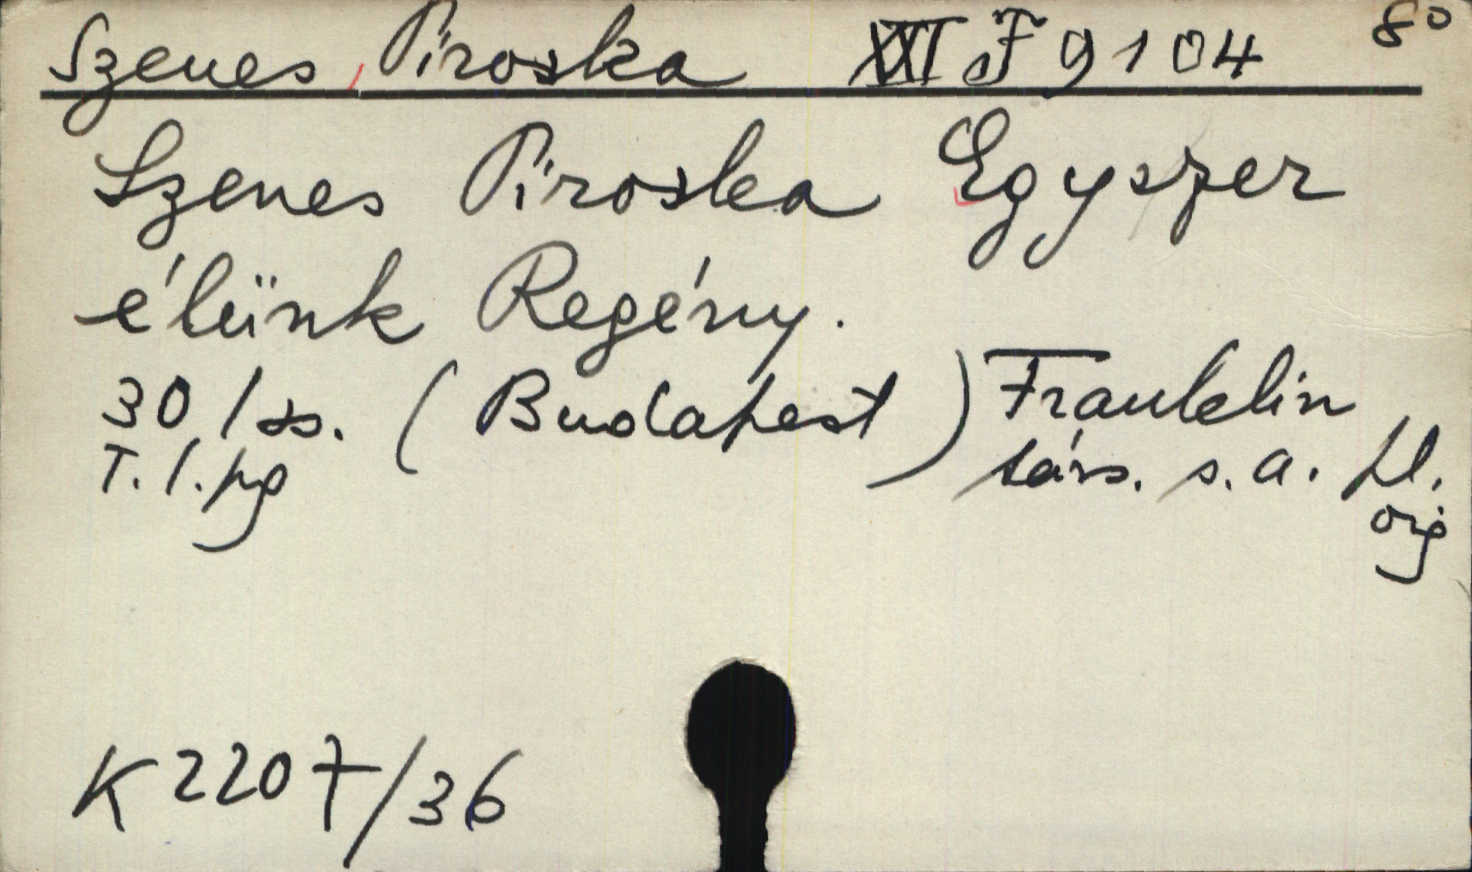 Szenes, Piroska XXI F 9104 8°
Szenes Piroska Egyszer
élünk Regény.
301 ss. (Budapest) Franklin
T. l. pg társ. s. a. Ll.
orig
K 2207/36